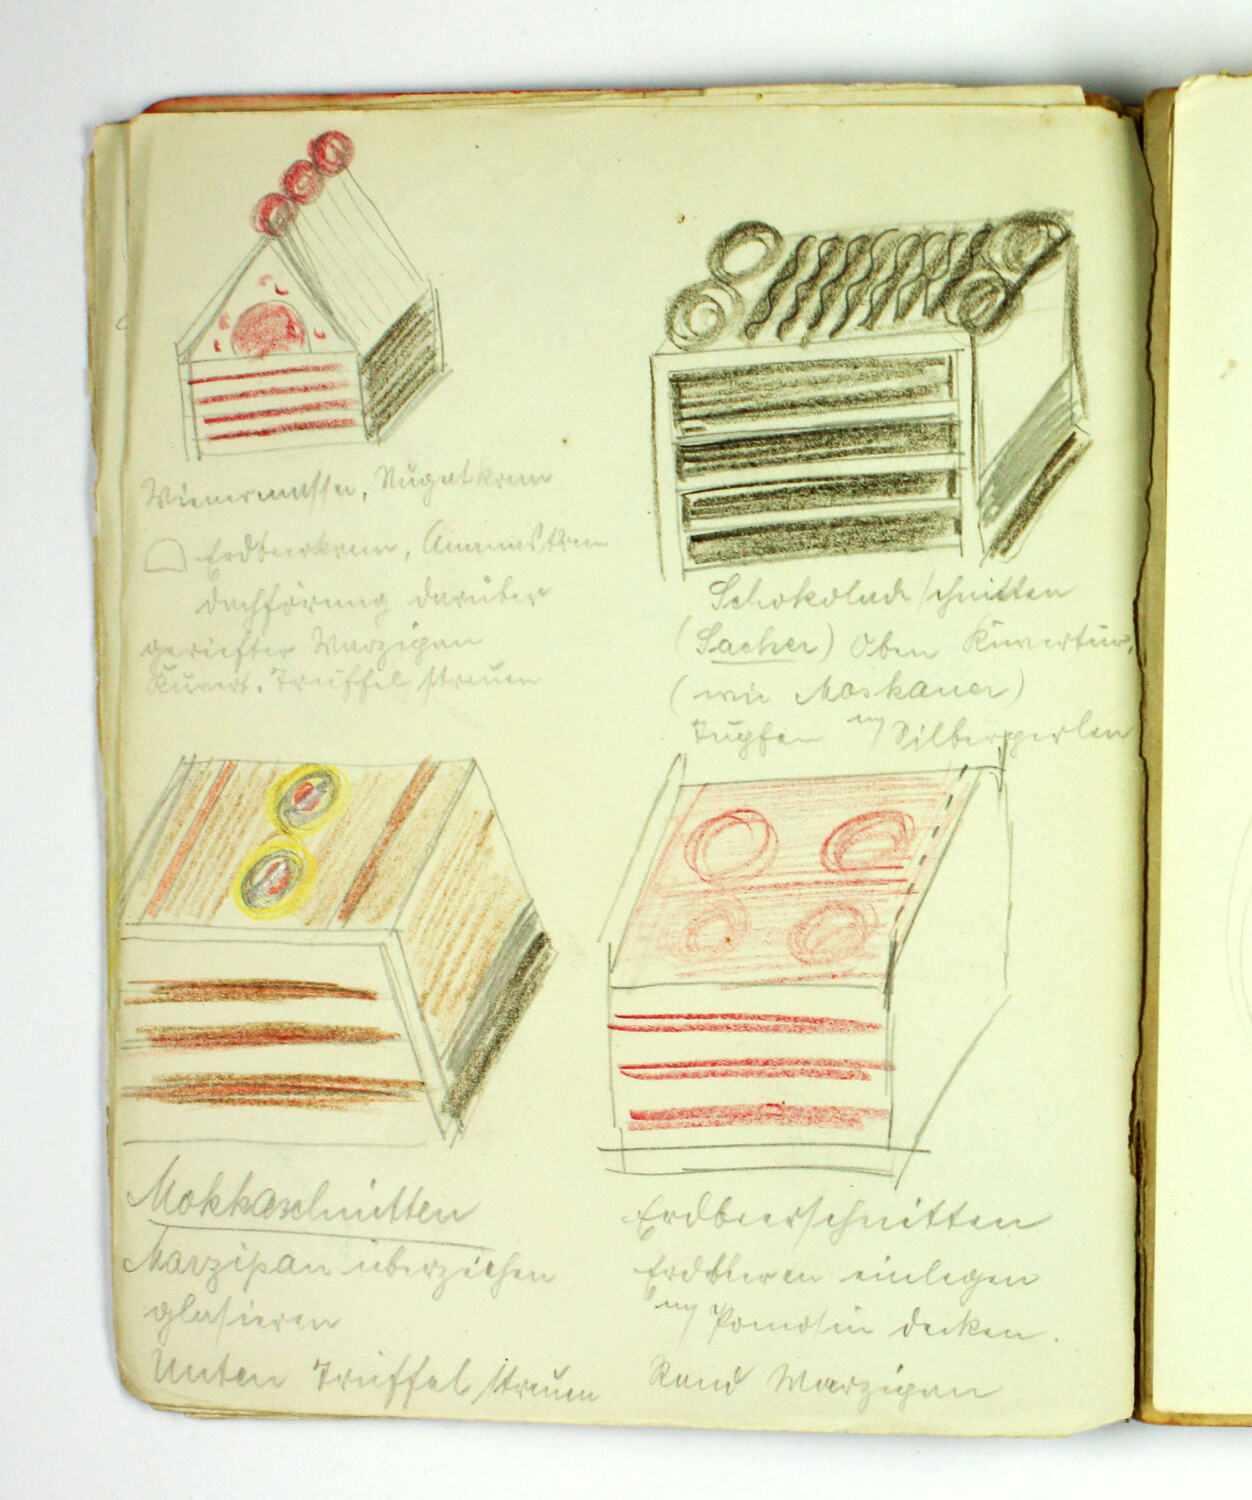 Wienermasse, Nugatkrem
Erdbeerkrem, Ananaskrem
dachförmig darüber
geriefter Marzipan
Kuvert. Trüffel streuen
Schokoladeschnitten
(Sacher) Oben Kuvertür.
(wie Moskauer)
Tupfen m Silberperlen
Mokkaschnitten
Marzipan überziehen
glasieren
Unten Trüffel streuen
Erdbeerschnitten
Erdbeeren einlegen
m Pomosin decken.
Rand Marzipan